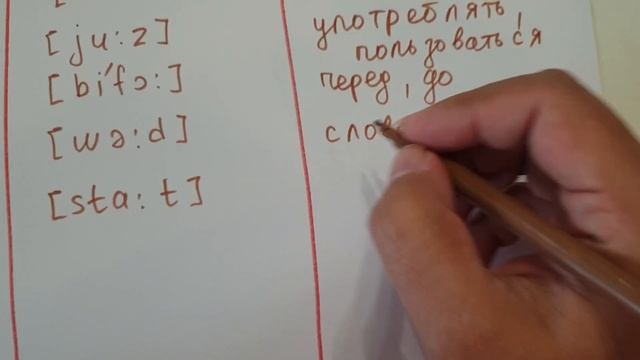 [ju:z]
[bi'fɔ:]
[wə:d]
[sta:t]
употреблять,
пользоваться
перед, до
слов